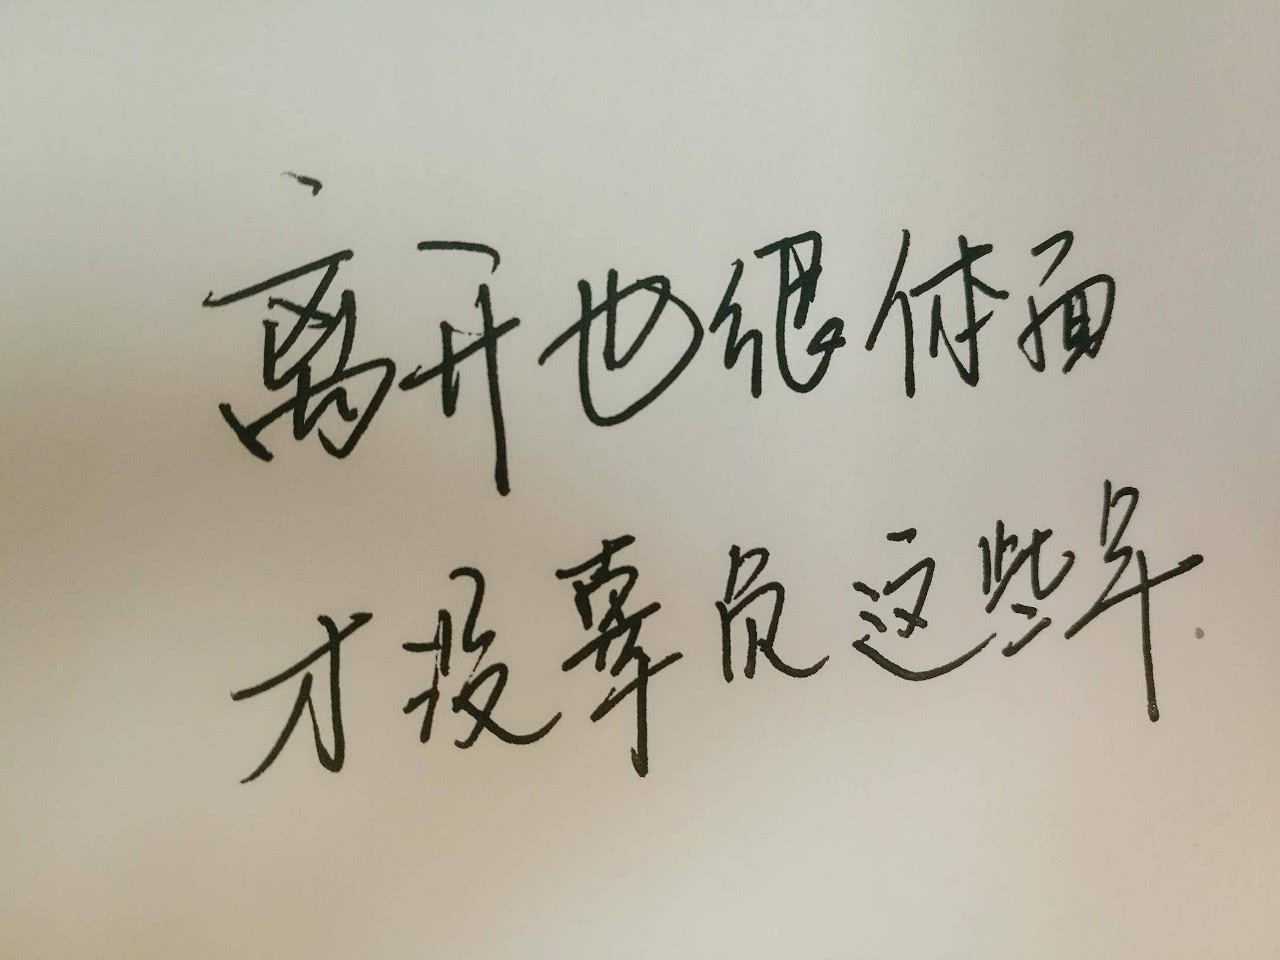 离开也很体面
才没辜负这些年